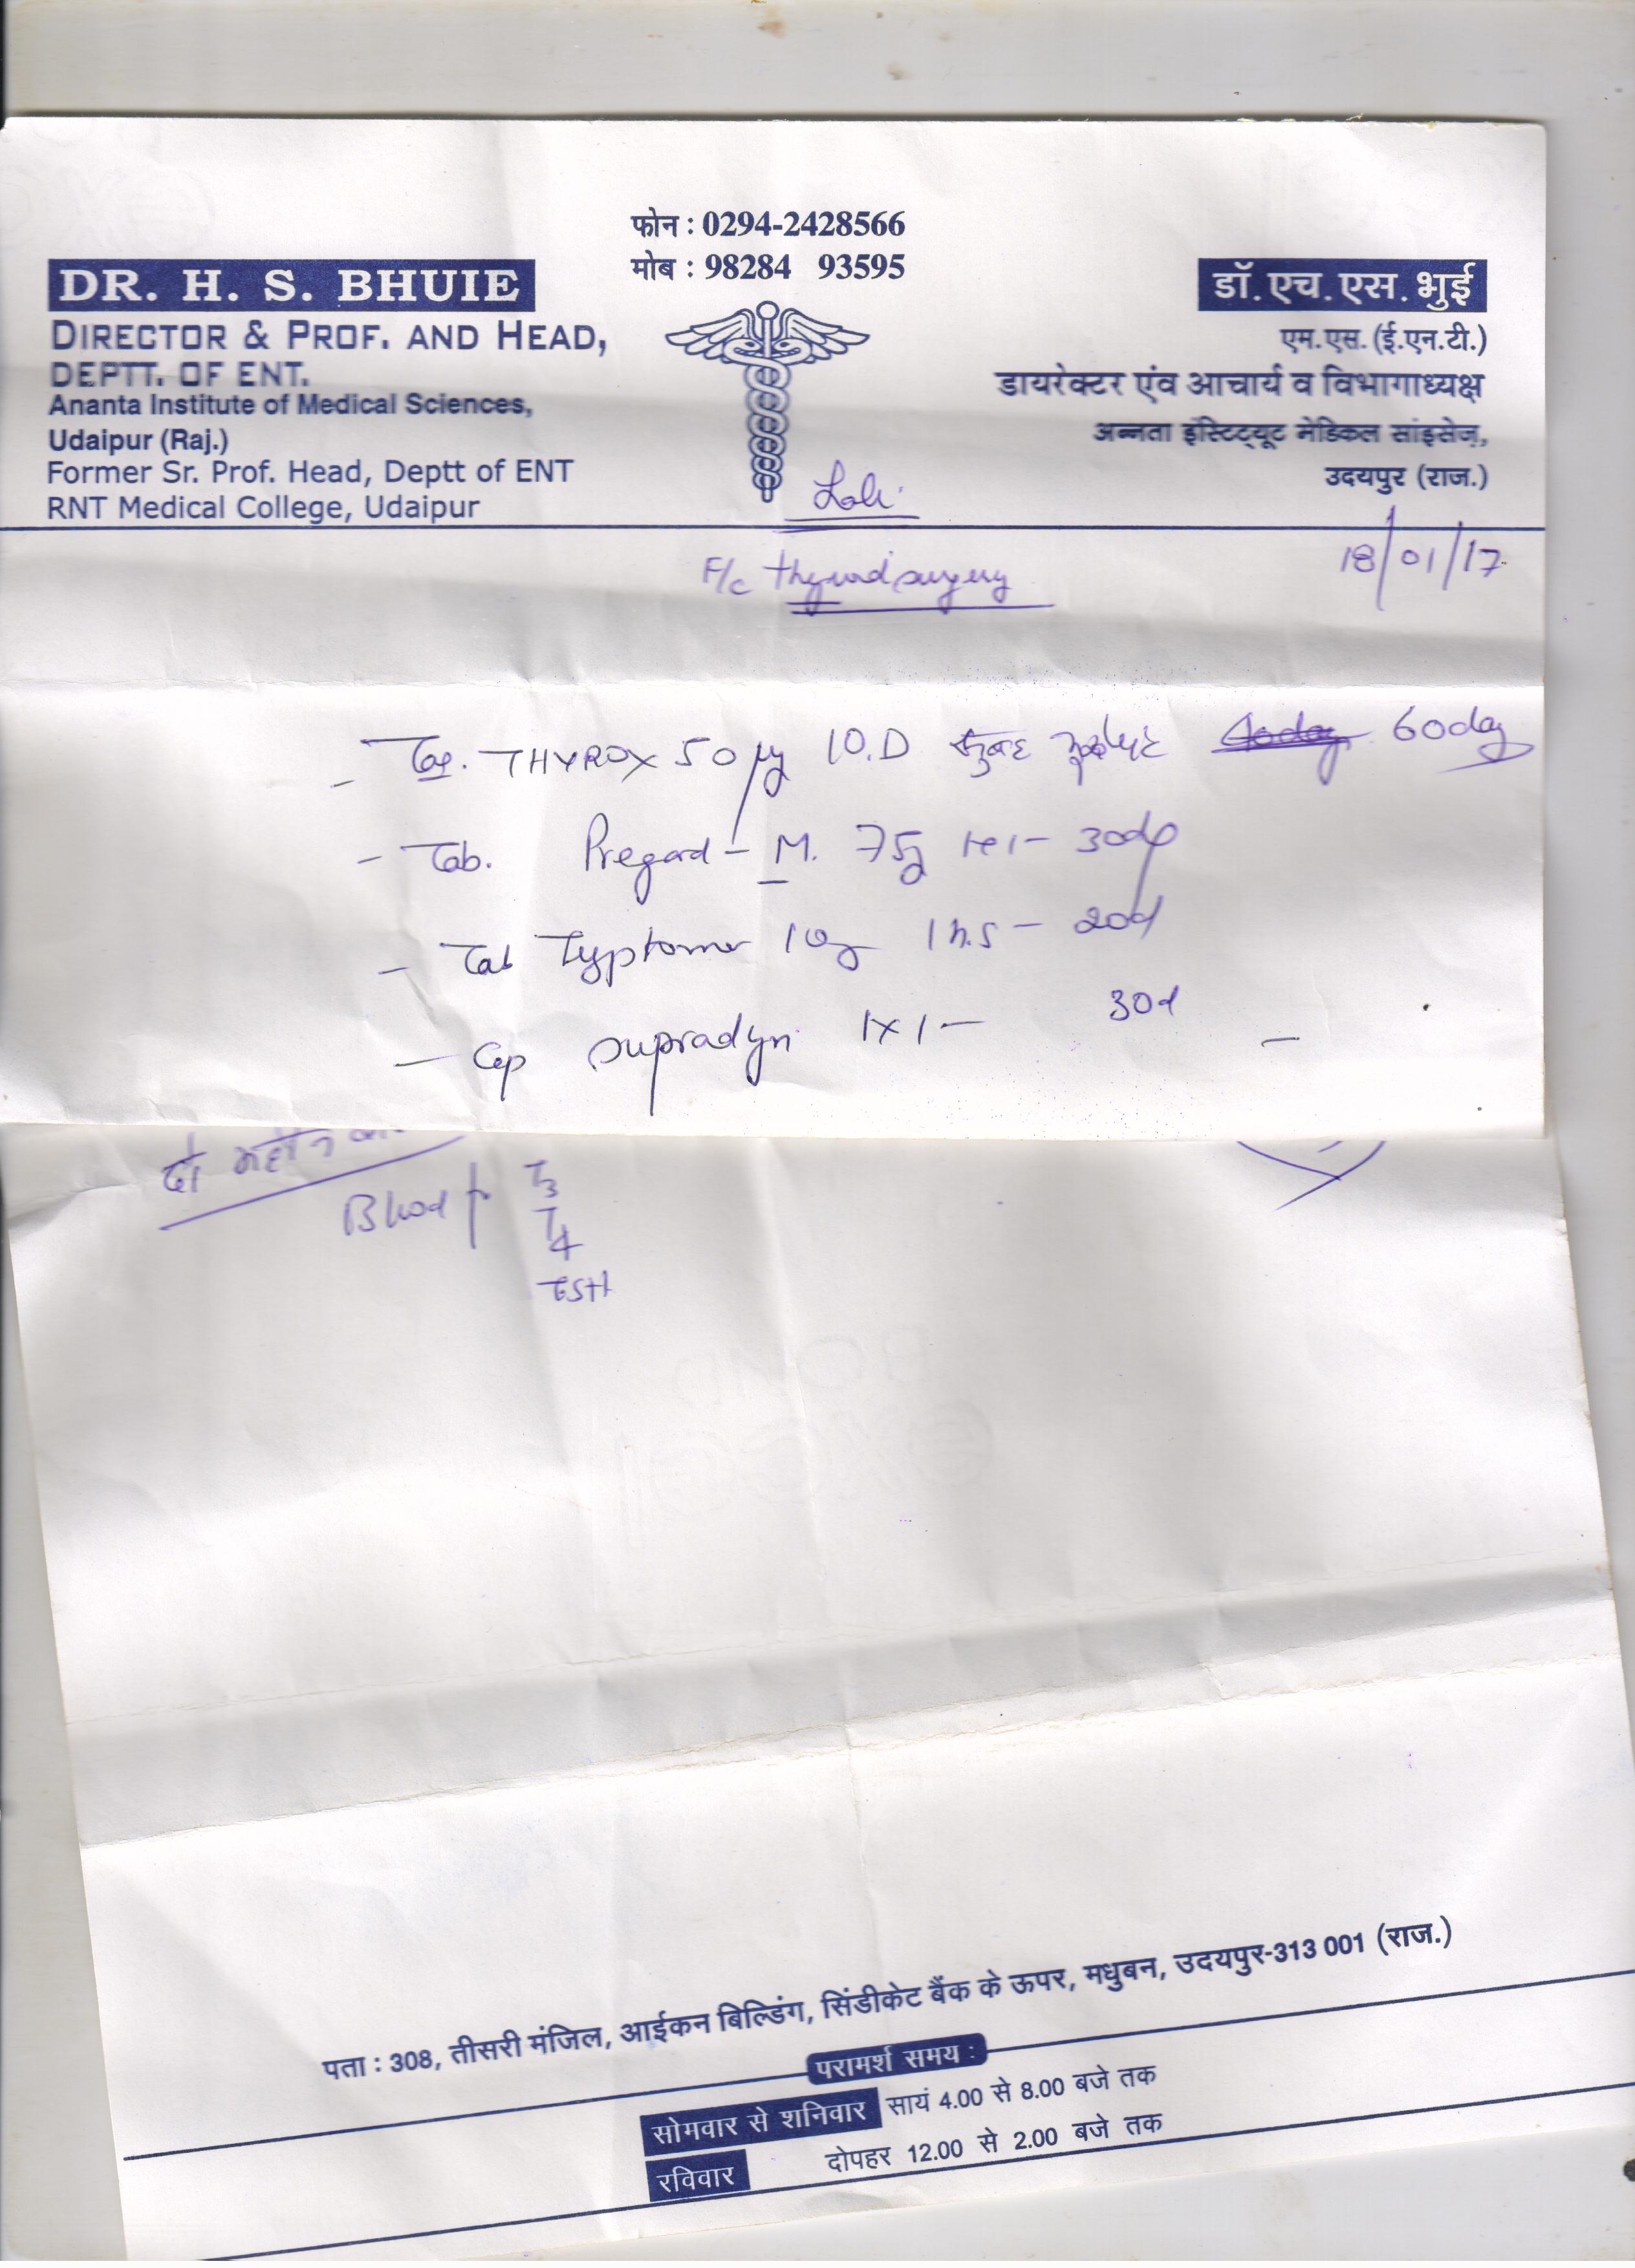 फोन : 0294-2428566
मोब : 98284 93595
DR. H. S. BHUIE
DIRECTOR & PROF. AND HEAD,
DEPTT. OF ENT.
Ananta Institute of Medical Sciences,
Udaipur (Raj.)
Former Sr. Prof. Head, Deptt of ENT
RNT Medical College, Udaipur
डॉ. एच. एस. भुई
एम.एस. (ई.एन.टी.)
डायरेक्टर एंव आचार्य व विभागाध्यक्ष
अन्नता इंस्टिट्यूट मेडिकल सांइसेज,
उदयपुर (राज.)
F/c thyroid surgery
18/01/17
- Tab. THYROX 50 µg 1O.D सुबह 60day
- Tab. Pregard - M. 75g 1x1 - 30d
- Tab 10g 1 h.s - 20d
- Cap supradyn 1x1 - 30d -
दो महीने
Blood T3
T4
TSH
पता : 308, तीसरी मंजिल, आईकन बिल्डिंग, सिंडीकेट बैंक के ऊपर, मधुबन, उदयपुर-313 001 (राज.)
परामर्श समय :
सोमवार से शनिवार सायं 4.00 से 8.00 बजे तक
रविवार दोपहर 12.00 से 2.00 बजे तक